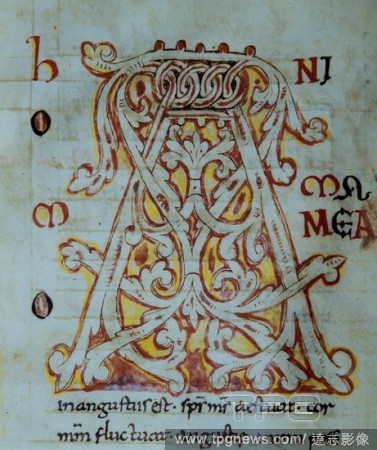 h
O
M
O
A
NI
MA
MEA
in angustiis est · spr̄ ms̄ aestuat · cor
mm̄ fluctuat ·
TPG
www.tpgnews.com/達志影像